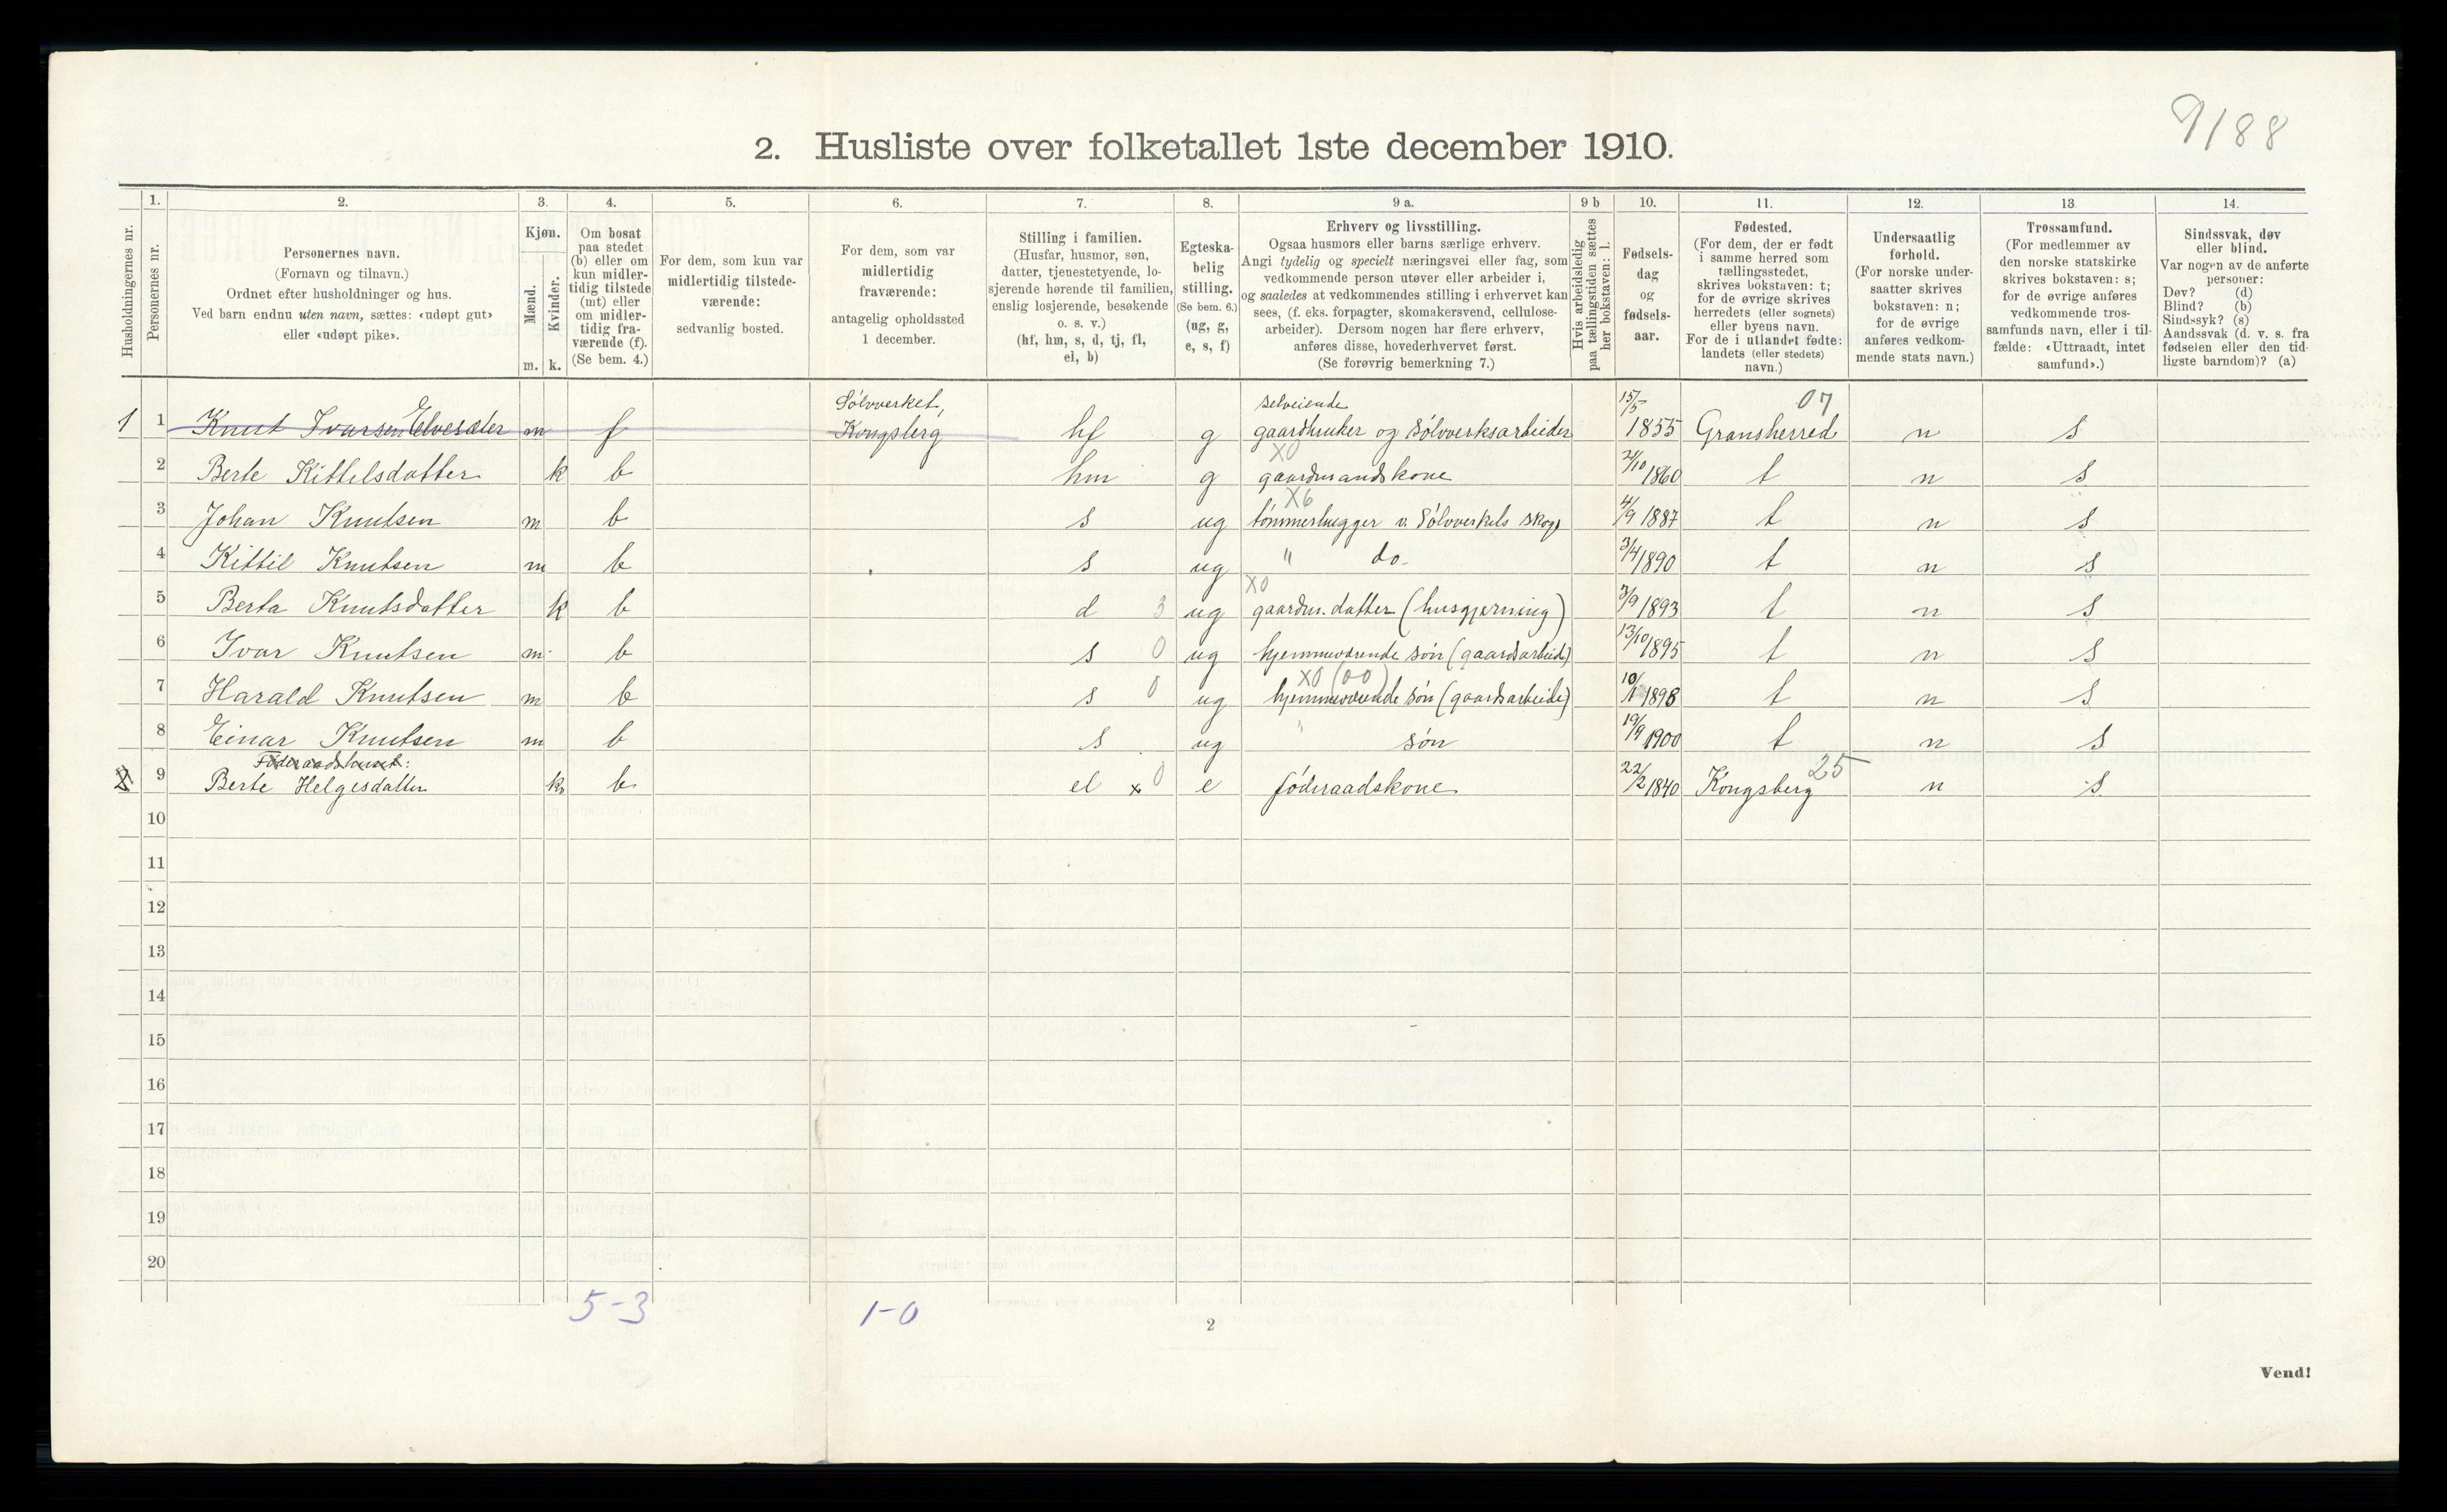 9/88
2. Husliste over folketallet 1ste december 1910.
1. 2. 3. 4. 5. 6. 7. 8. 9 a. 9 b 10. 11. 12. 13. 14.
Husholdningernes nr.
Personernes nr.
Personernes navn.
(Fornavn og tilnavn.)
Ordnet efter husholdninger og hus.
Ved barn endnu uten navn, sættes: «udøpt gut»
eller «udøpt pike».
Kjøn.
Mænd.
Kvinder.
m. k.
Om bosat
paa stedet
(b) eller om
kun midler-
tidig tilstede
(mt) eller
om midler-
tidig fra-
værende (f).
(Se bem. 4.)
For dem, som kun var
midlertidig tilstede-
værende:
sedvanlig bosted.
For dem, som var
midlertidig
fraværende:
antagelig opholdssted
1 december.
Stilling i familien.
(Husfar, husmor, søn,
datter, tjenestetyende, lo-
sjerende hørende til familien,
enslig losjerende, besøkende
o. s. v.)
(hf, hm, s, d, tj, fl,
el, b)
Egteska-
belig
stilling.
(Se bem. 6.)
(ug, g,
e, s, f)
Erhverv og livsstilling.
Ogsaa husmors eller barns særlige erhverv.
Angi tydelig og specielt næringsvei eller fag, som
vedkommende person utøver eller arbeider i,
og saaledes at vedkommendes stilling i erhvervet kan
sees, (f. eks. forpagter, skomakersvend, cellulose-
arbeider). Dersom nogen har flere erhverv,
anføres disse, hovederhvervet først.
(Se forøvrig bemerkning 7.)
Hvis arbeidsledig
paa tællingstiden sættes
her bokstaven: l.
Fødsels-
dag
og
fødsels-
aar.
Fødested.
(For dem, der er født
i samme herred som
tællingsstedet,
skrives bokstaven: t;
for de øvrige skrives
herredets (eller sognets)
eller byens navn.
For de i utlandet fødte:
landets (eller stedets)
navn.)
Undersaatlig
forhold.
(For norske under-
saatter skrives
bokstaven: n;
for de øvrige
anføres vedkom-
mende stats navn.)
Trossamfund.
(For medlemmer av
den norske statskirke
skrives bokstaven: s;
for de øvrige anføres
vedkommende tros-
samfunds navn, eller i til-
fælde: «Uttraadt, intet
samfund».)
Sindssvak, døv
eller blind.
Var nogen av de anførte
personer:
Døv? (d)
Blind? (b)
Sindssyk? (s)
Aandssvak (d. v. s. fra
fødselen eller den tid-
ligste barndom)? (a)
Sølvverket, selveiende 15/5 07
1 1 Knut Ivarsen Elvesæter m f Kongsberg hf g gaardbruker og Sølvverksarbeider 1855 Gransherred n s
X0
2 Berte Kittilsdatter k b hm g gaardmandskone 21/10 1860 t n s
X6
3 Johan Knutsen m b s ug tømmerhugger v. Sølvverkets skog 4/9 1887 t n s
4 Kittil Knutsen m b s ug " do. 3/4 1890 t n s
X0
5 Berta Knutsdatter k b d 3 ug gaardm. datter (husgjerning) 3/9 1893 t n s
6 Ivar Knutsen m b s 0 ug hjemmeværende søn (gaardsarbeide) 13/10 1895 t n s
X0 (00)
7 Harald Knutsen m b s 0 ug hjemmeværende søn (gaardsarbeide) 10/1 1898 t n s
8 Einar Knutsen m b s ug " søn 19/9 1900 t n s
Føderaadshuset: 25
2 9 Berte Helgesdatter k b el x 0 e føderaadskone 22/2 1840 Kongsberg n s
10
11
12
13
14
15
16
17
18
19
20
5-3 1-0
2
Vend!